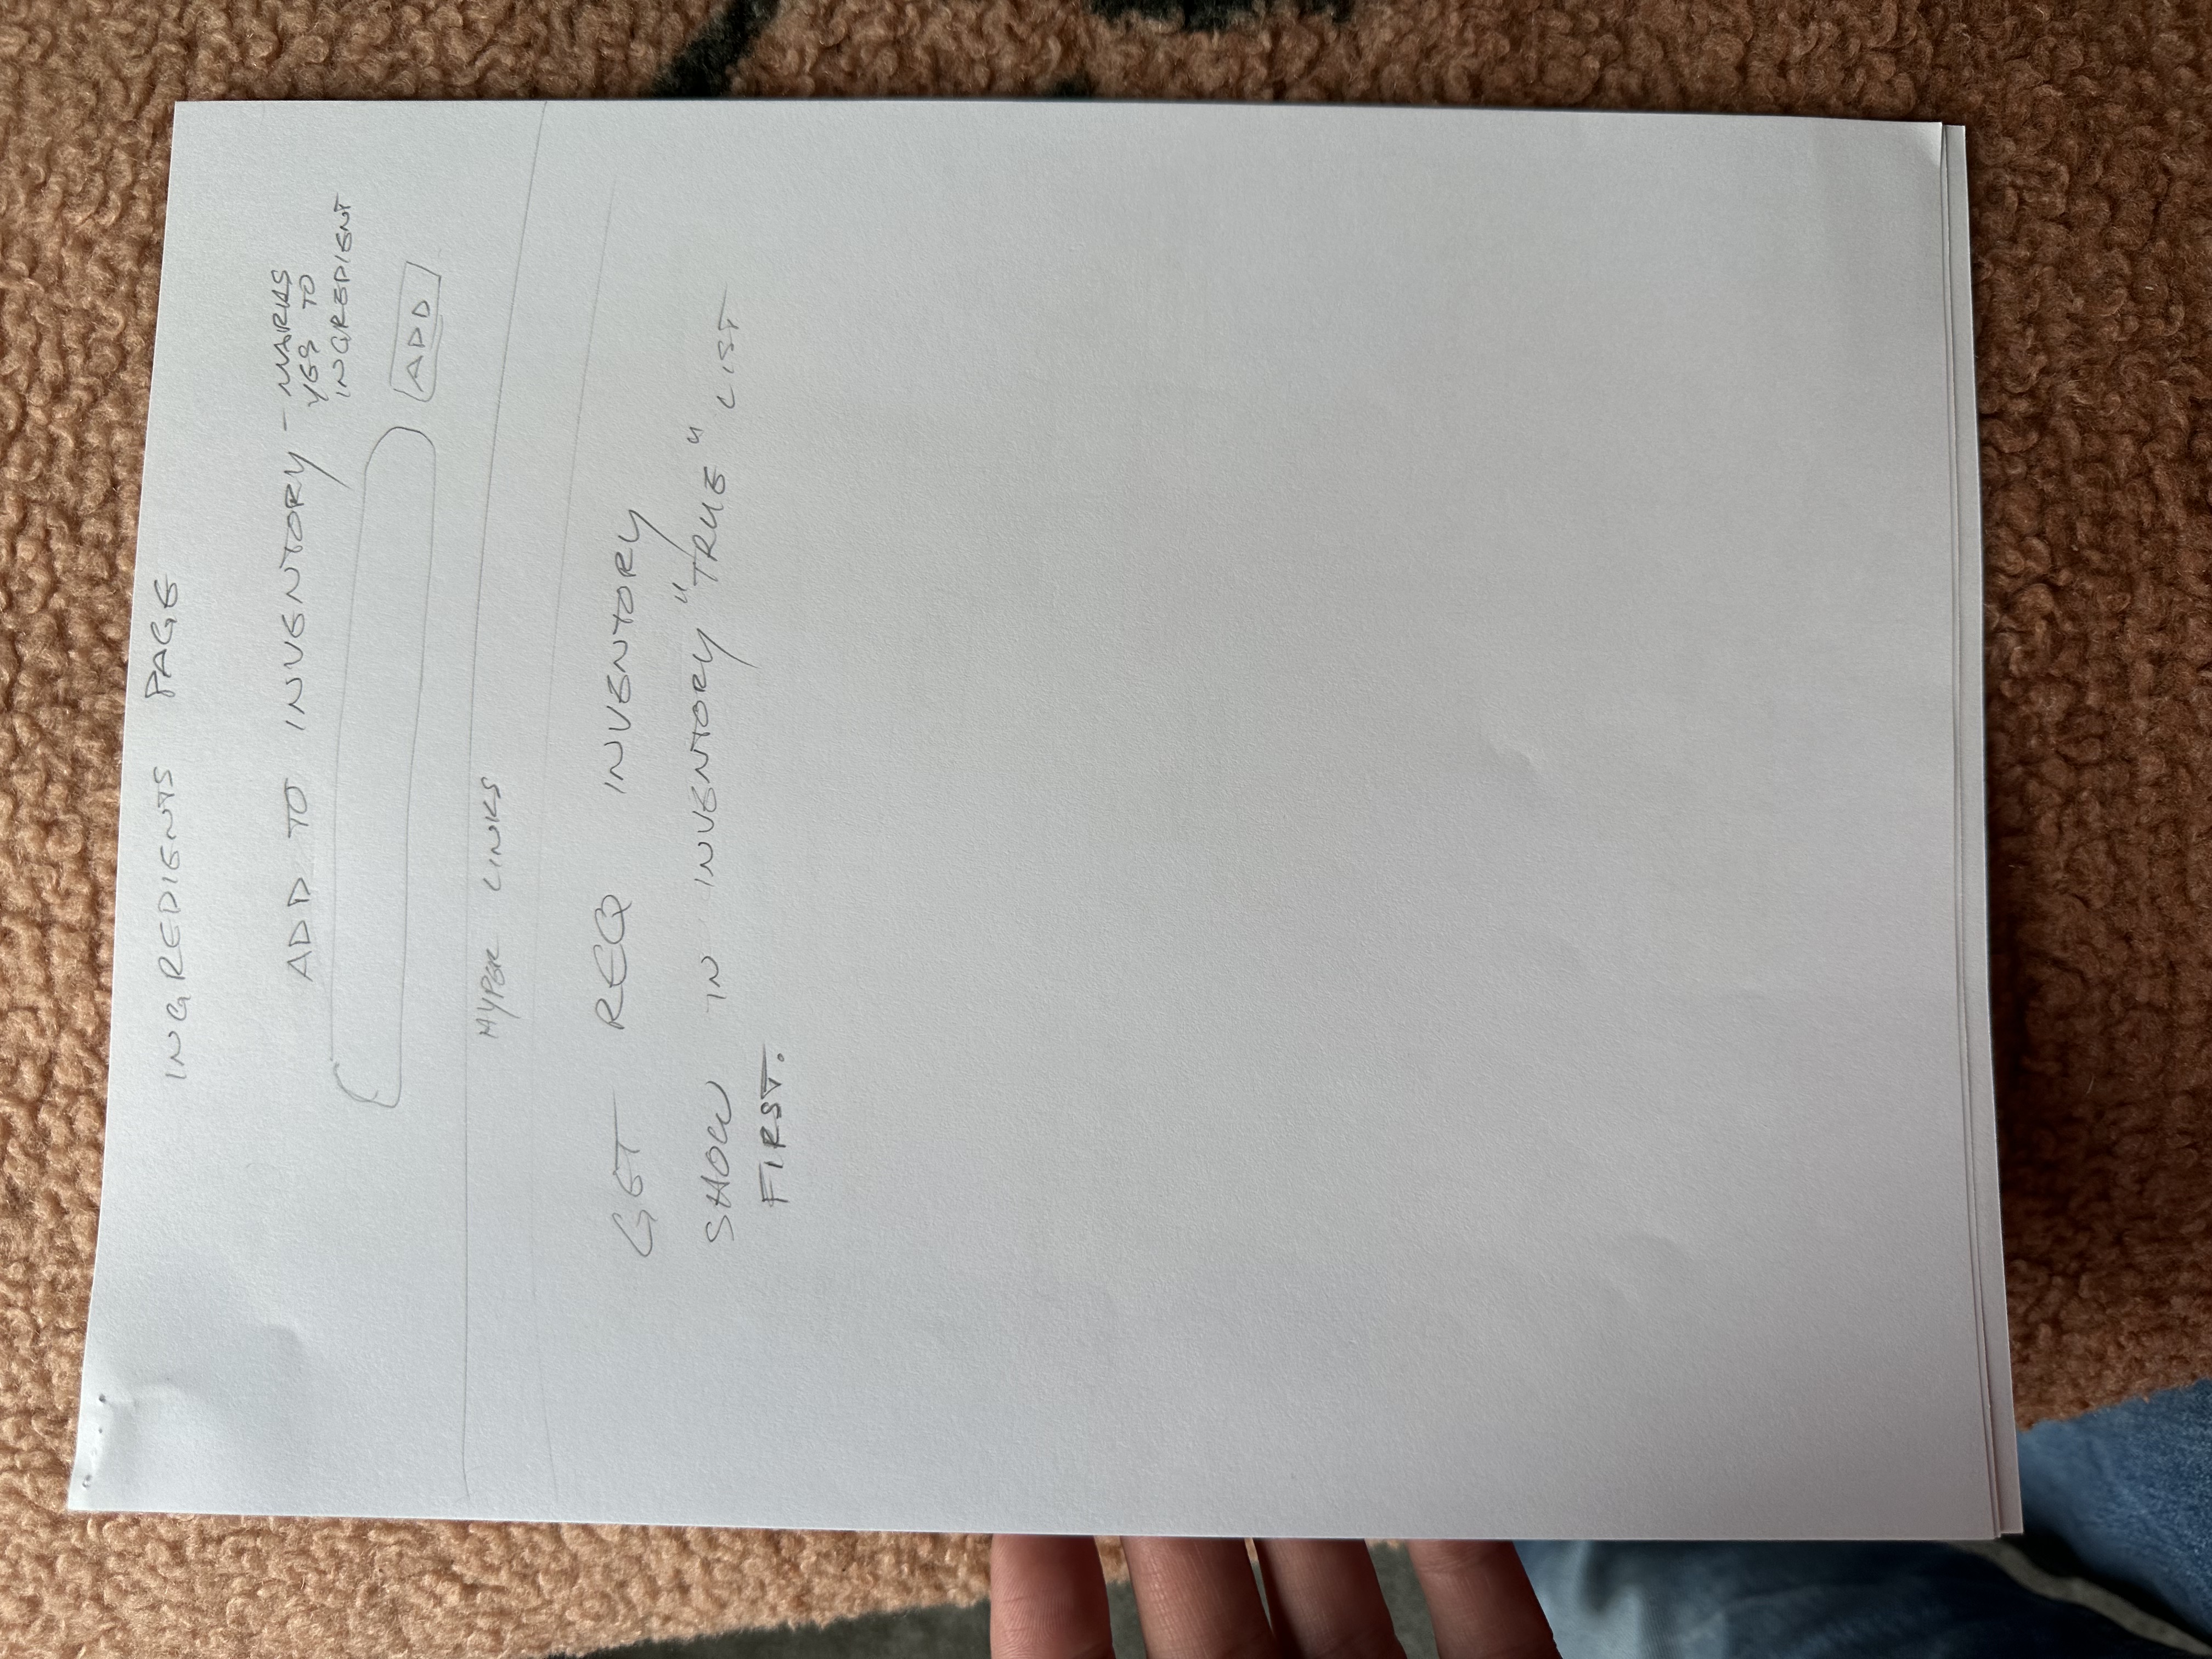 INGREDIENTS PAGE
ADD TO INVENTORY - MARKS
YES TO
INGREDIENT
ADD
HYPER LINKS
GET REQ INVENTORY
SHOW IN INVENTORY "TRUE" LIST
FIRST.